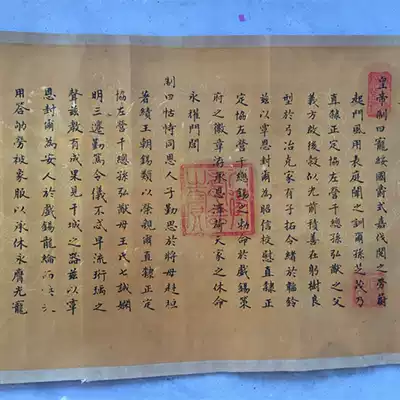 皇帝制曰寵綏國爵式嘉伐閱之勞蔚
起門風用表庭闈之訓爾孫乃
直隸正定協左營千總孫弘猷之父
義方啟後穀似光前積善在躬樹良
型於弓冶克家有子拓令緒於韜鈐
茲以覃恩封爾為昭信校慰直隸正
定協左營千總錫之勅命於戲錫策
府之徽章洊承恩澤荷天家之休命
永耀門閭
制曰怙恃同恩人子勤思於將母赳桓
著績王朝錫類以榮親爾直隸正定
協左營千總孫弘猷母王氏七誡嫻
明三遷勤篤令儀不忒早流珩瑀之
聲慈教有成果見干城之器茲以覃
恩封爾為安人於戲錫龍綸而
用答劬勞被象服以承休永膺光寵